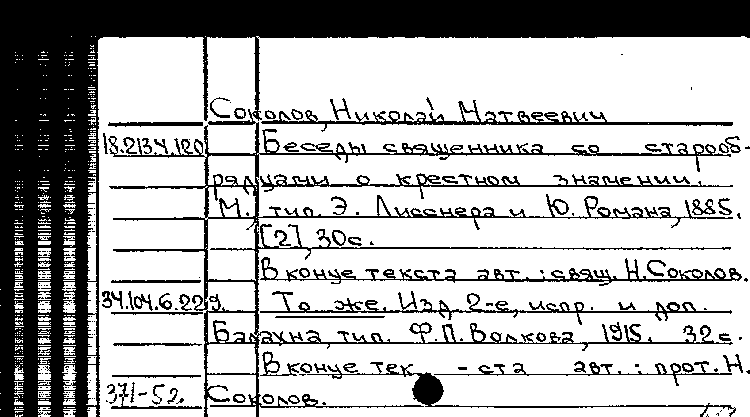 Соколов, Николай Матвеевич
18.213.4.120 Беседы священника со старооб-
рядцами о крестном знамении.
М., тип. Э. Лисснера и Ю. Романа, 1885.
[2], 30с.
В конце текста авт.: свящ. Н.Соколов.
34.104.6.229. То же. Изд. 2-е, испр. и доп.
Балахна, тип. Ф.П.Волкова, 1915. 32с.
В конце тек - ста авт.: прот. Н.
371-52. Соколов.